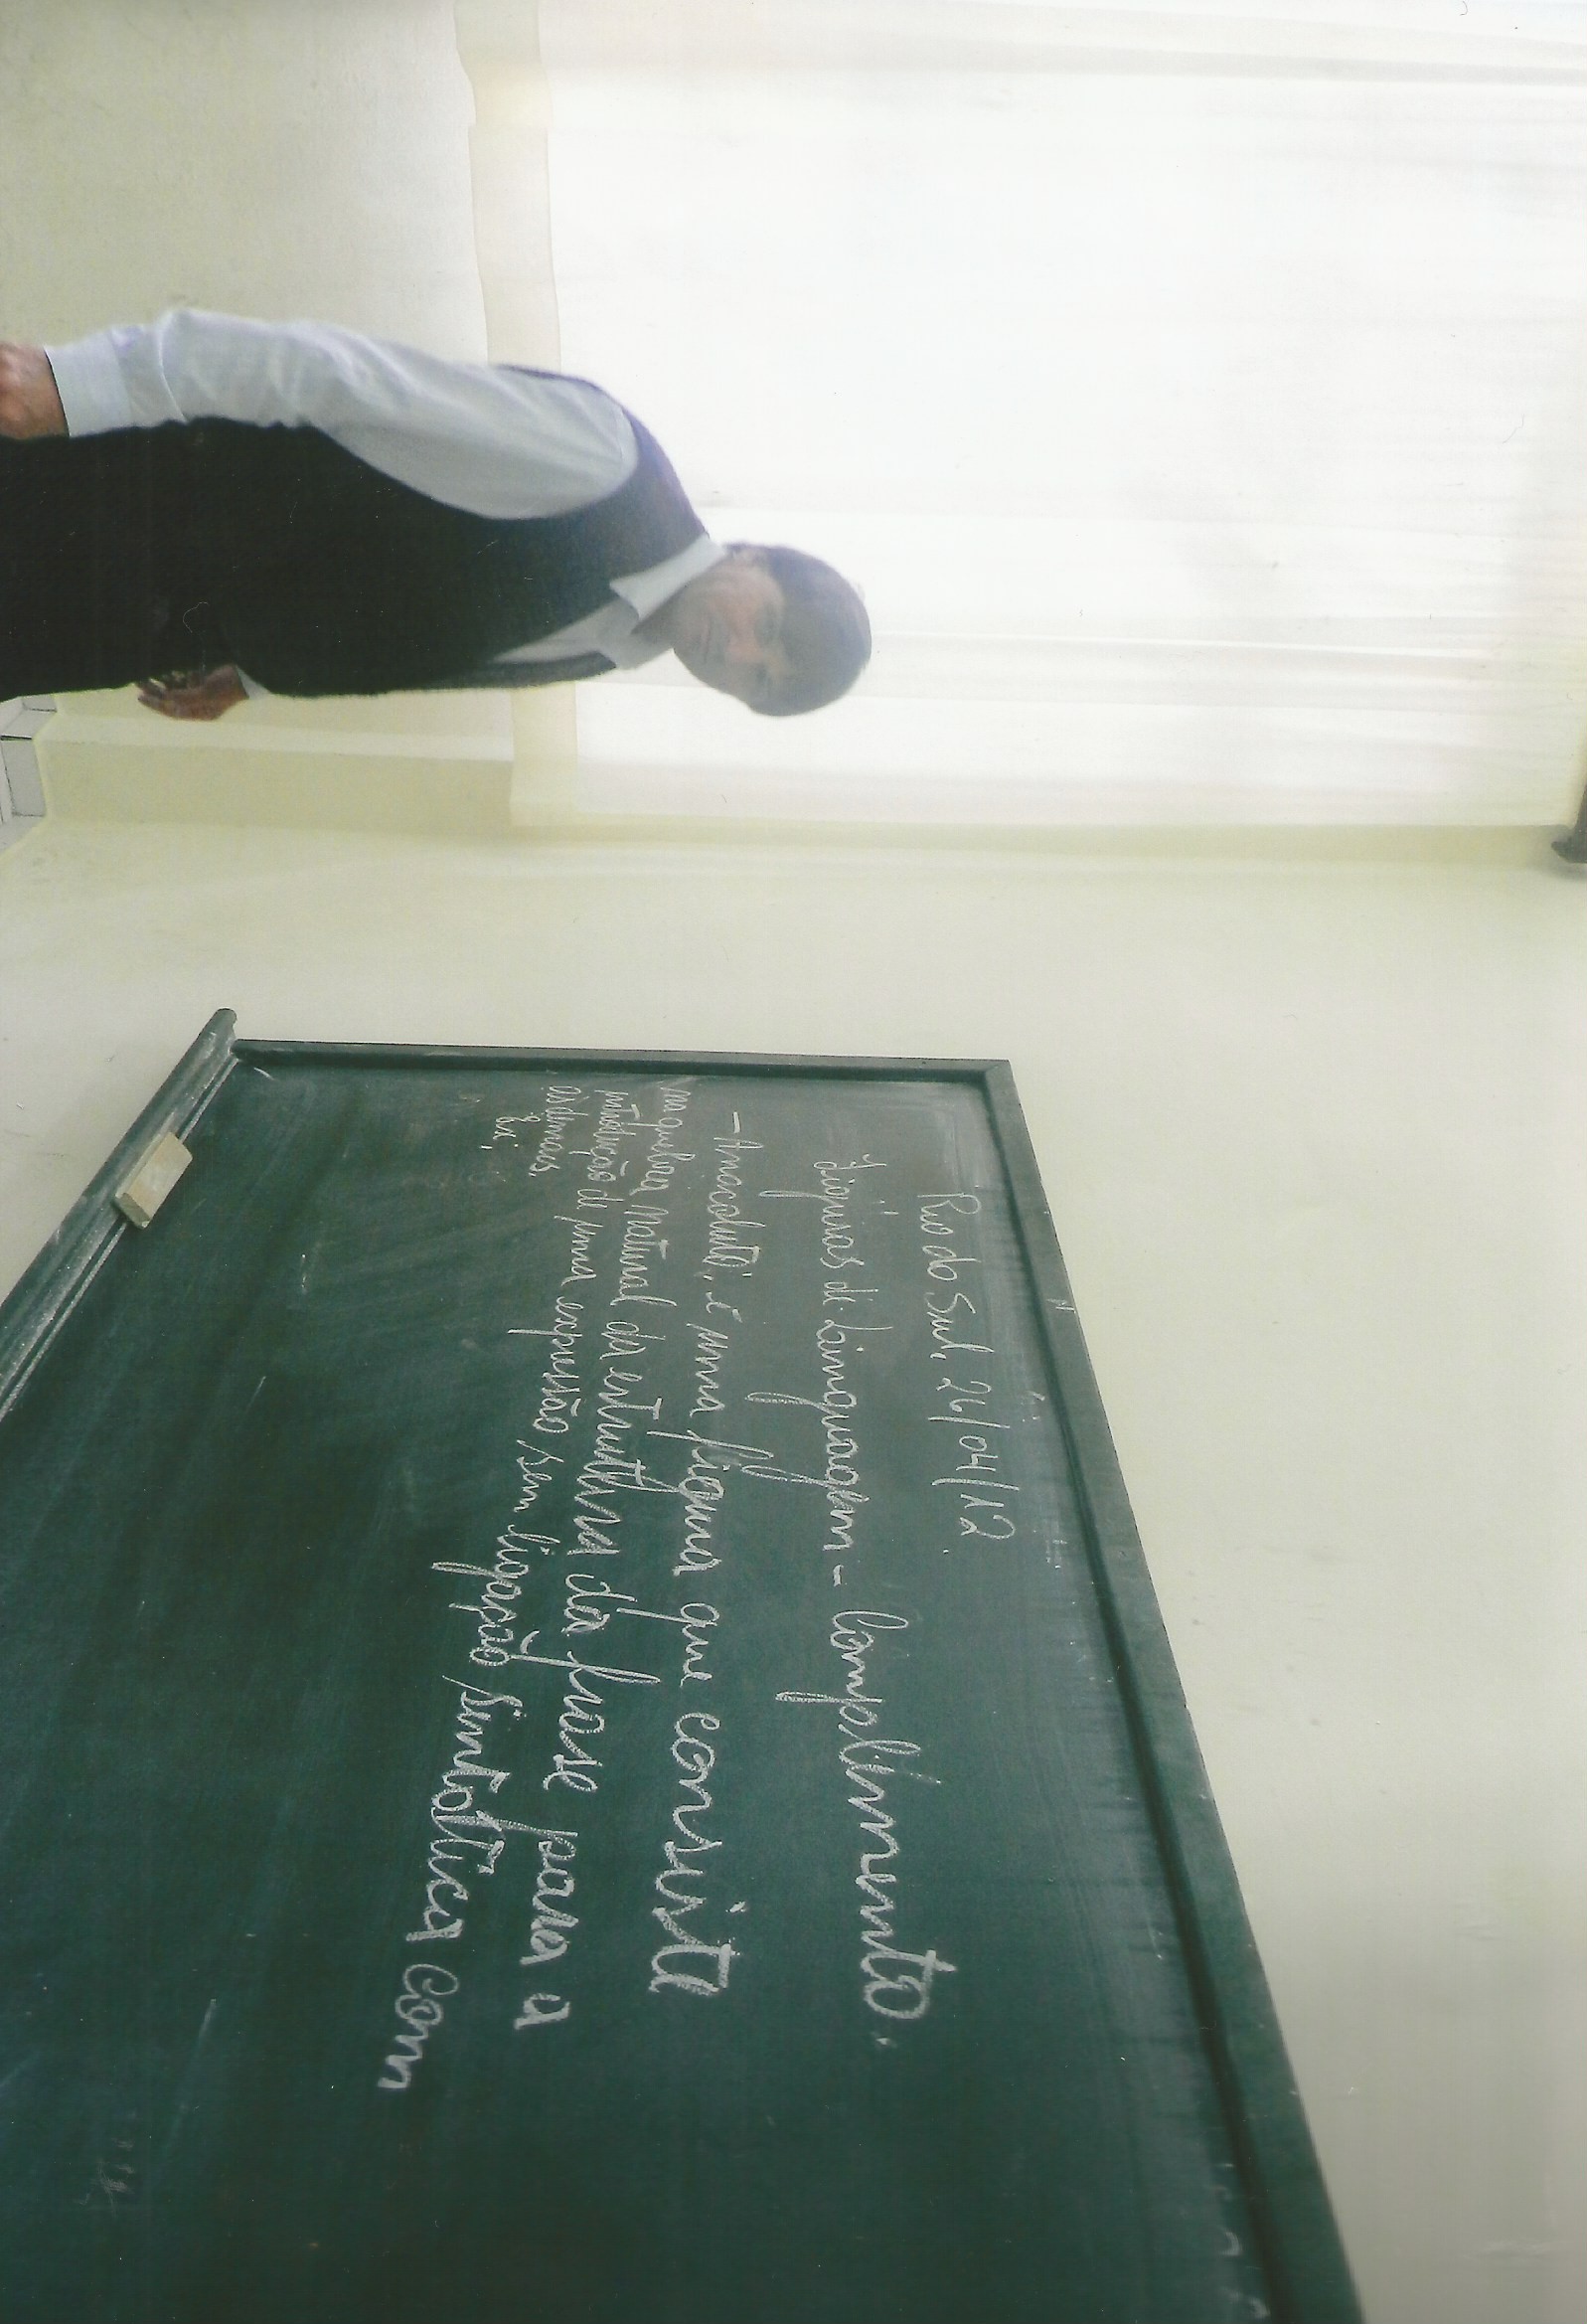 Rio do Sul, 26/04/12.
Figuras de Linguagem - Complemento.
- Anacoluto: é uma figura que consiste
na quebra natural da estrutura da frase para a
introdução de uma expressão sem ligação sintática com
as demais.
Ex: